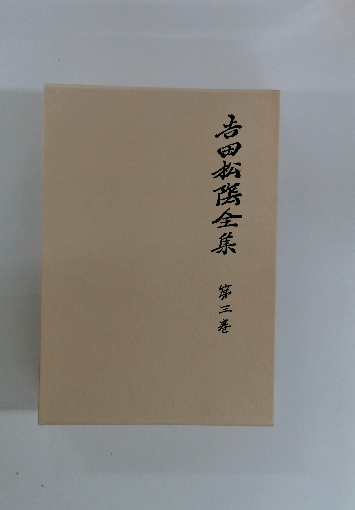 吉田松陰全集
第三巻